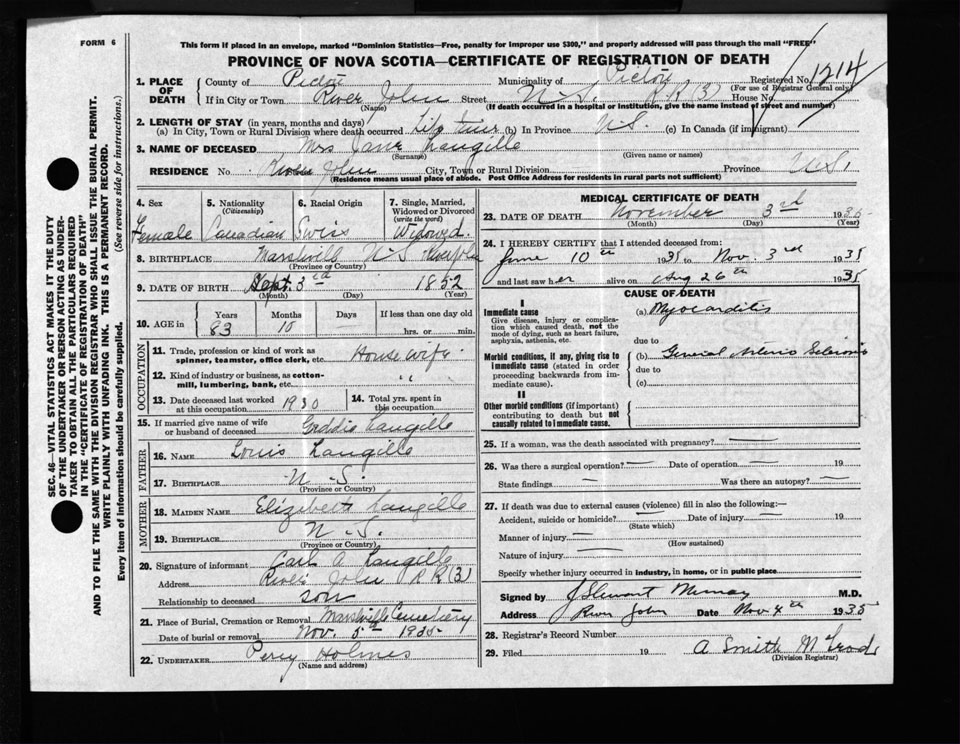 FORM 6
This form if placed in an envelope, marked "Dominion Statistics—Free, penalty for improper use $300," and properly addressed will pass through the mail "FREE"
PROVINCE OF NOVA SCOTIA—CERTIFICATE OF REGISTRATION OF DEATH
1. PLACE OF DEATH
County of Pictou Municipality of Pictou Registered No. 1214
(For use of Registrar General only)
If in City or Town River John Street N S. R R (3) House No.
(Name) (If death occurred in a hospital or institution, give the name instead of street and number)
2. LENGTH OF STAY (in years, months and days)
(a) In City, Town or Rural Division where death occurred life time (b) In Province N.S. (c) In Canada (if immigrant)
3. NAME OF DECEASED Mrs Jane Langille
(Surname) (Given name or names)
RESIDENCE No. River John City, Town or Rural Division Province N.S.
(Residence means usual place of abode. Post Office Address for residents in rural parts not sufficient)
4. Sex 5. Nationality (Citizenship) 6. Racial Origin 7. Single, Married, Widowed or Divorced (write the word)
Female Canadian Swiss Widowed.
8. BIRTHPLACE Marshville N S
(Province or Country)
9. DATE OF BIRTH Sept. 3rd 1852
(Month) (Day) (Year)
10. AGE in Years Months Days If less than one day old
83 10 — hrs. or min.
OCCUPATION
11. Trade, profession or kind of work as spinner, teamster, office clerk, etc. House wife
12. Kind of industry or business, as cotton-mill, lumbering, bank, etc. " "
13. Date deceased last worked at this occupation 1930 14. Total yrs. spent in this occupation
15. If married give name of wife or husband of deceased Langille
FATHER
16. NAME Louis Langille
17. BIRTHPLACE N S.
(Province or Country)
MOTHER
18. MAIDEN NAME Elizabeth Langille
19. BIRTHPLACE N S.
(Province or Country)
20. Signature of informant Carl A Langille
Address River John R R (3)
Relationship to deceased son
21. Place of Burial, Cremation or Removal Marshville Cemetery
Date of burial or removal Nov. 5th 1935
22. UNDERTAKER Percy Holmes
(Name and address)
MEDICAL CERTIFICATE OF DEATH
23. DATE OF DEATH November 3rd 1935
(Month) (Day) (Year)
24. I HEREBY CERTIFY that I attended deceased from:
June 10th 1935 to Nov. 3rd 1935
and last saw her alive on Aug 26th 1935
CAUSE OF DEATH
I
Immediate cause (a) Myocarditis
Give disease, injury or complication which caused death, not the mode of dying, such as heart failure, asphyxia, asthenia, etc.
due to
Morbid conditions, if any, giving rise to immediate cause (stated in order proceeding backwards from immediate cause). (b) General Arterio Sclerosis
due to
(c)
II
Other morbid conditions (if important) contributing to death but not causally related to immediate cause.
25. If a woman, was the death associated with pregnancy? —
26. Was there a surgical operation? — Date of operation — 19
State findings — Was there an autopsy? —
27. If death was due to external causes (violence) fill in also the following:—
Accident, suicide or homicide? — Date of injury — 19
(State which)
Manner of injury —
(How sustained)
Nature of injury —
Specify whether injury occurred in industry, in home, or in public place
Signed by J Stewart Murray M.D.
Address River John Date Nov 4th 1935
28. Registrar's Record Number
29. Filed 19 A Smith McLeod
(Division Registrar)
SEC. 46—VITAL STATISTICS ACT MAKES IT THE DUTY
OF THE UNDERTAKER OR PERSON ACTING AS UNDER-
TAKER TO OBTAIN ALL THE PARTICULARS REQUIRED
IN THE "CERTIFICATE OF REGISTRATION OF DEATH"
AND TO FILE THE SAME WITH THE DIVISION REGISTRAR WHO SHALL ISSUE THE BURIAL PERMIT.
WRITE PLAINLY WITH UNFADING INK. THIS IS A PERMANENT RECORD.
Every item of information should be carefully supplied. (See reverse side for instructions.)